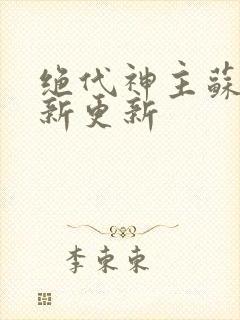 绝代神主蘇
新更新
李东东